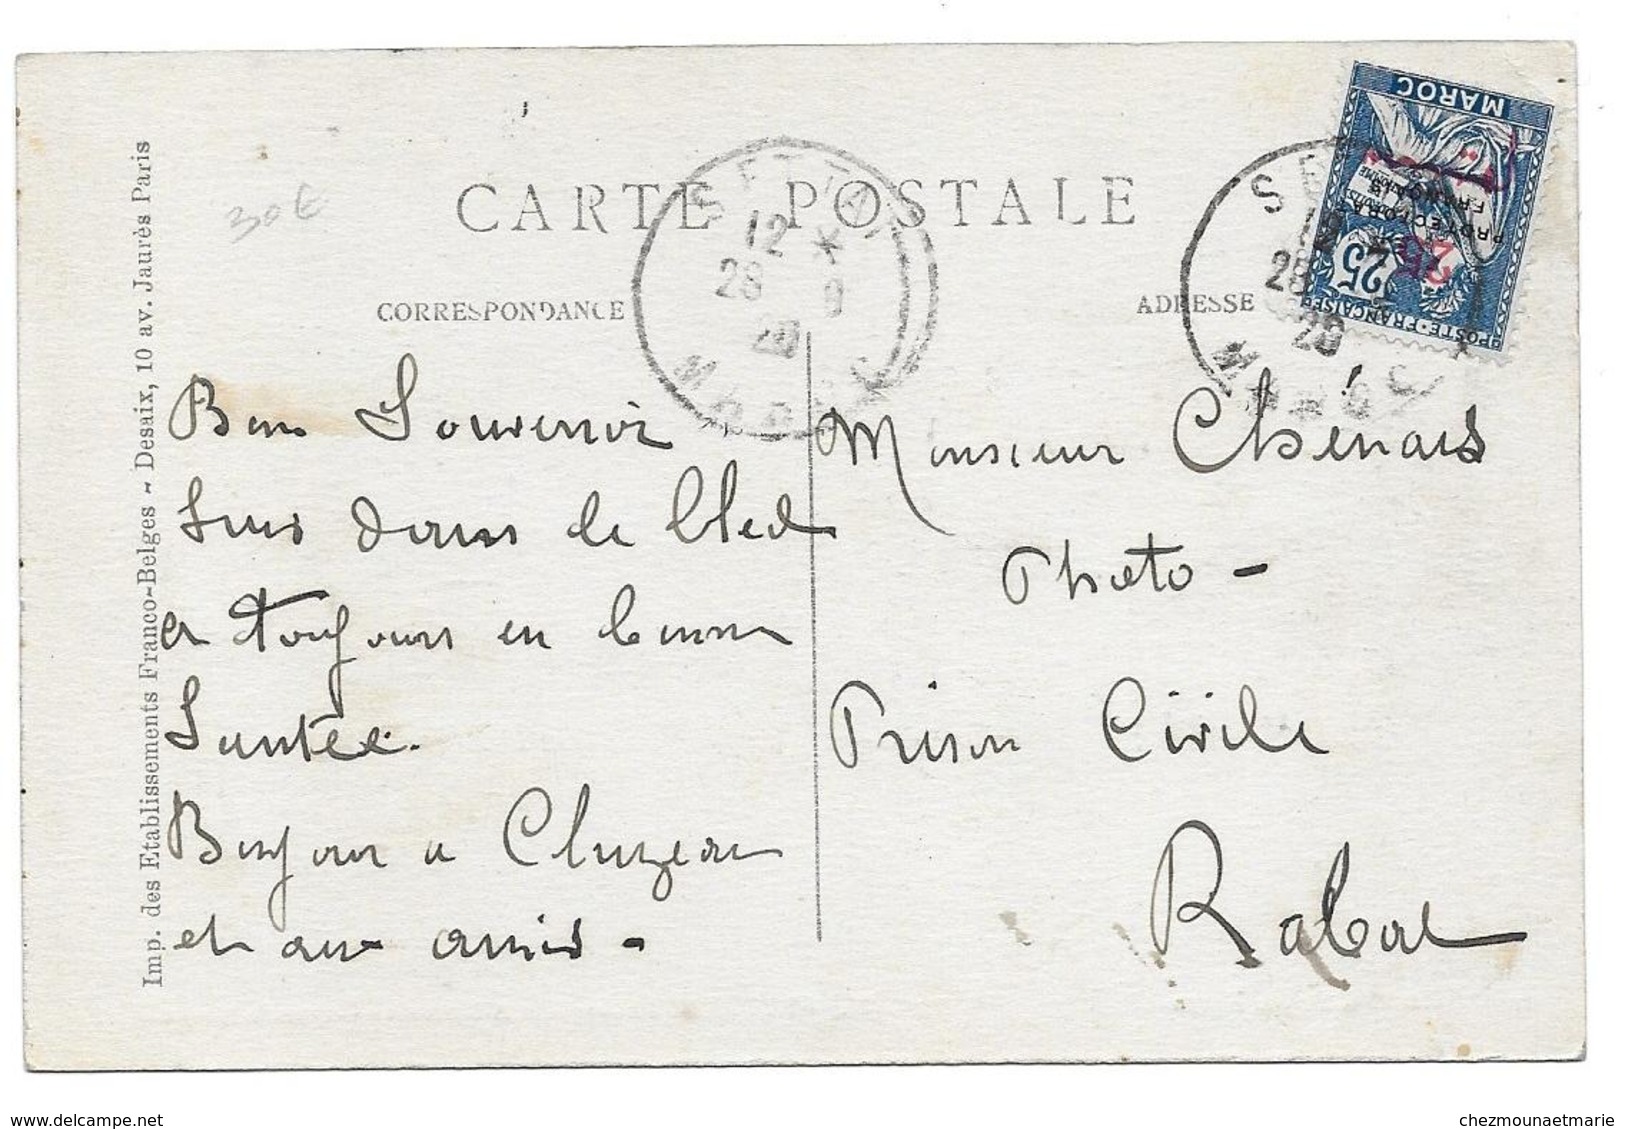 CARTE POSTALE
CORRESPONDANCE
ADRESSE
30€
SETTAT
12 *
28 9
20
MAROC
SE
12 *
28
20
MAROC
MAROC
PROTECTORAT
FRANÇAIS
25
25
POSTE FRANÇAISE
Imp. des Etablissements Franco-Belges ~ Desaix, 10 av. Jaurès Paris
Bon Souvenir
Suis dans le bled
et toujours en bonne
Santée.
Bonjour a Cluzeau
et aux amis -
Monsieur Chénais
Photo -
Prison Civile
Rabat
www.delcampe.net
chezmounaetmarie